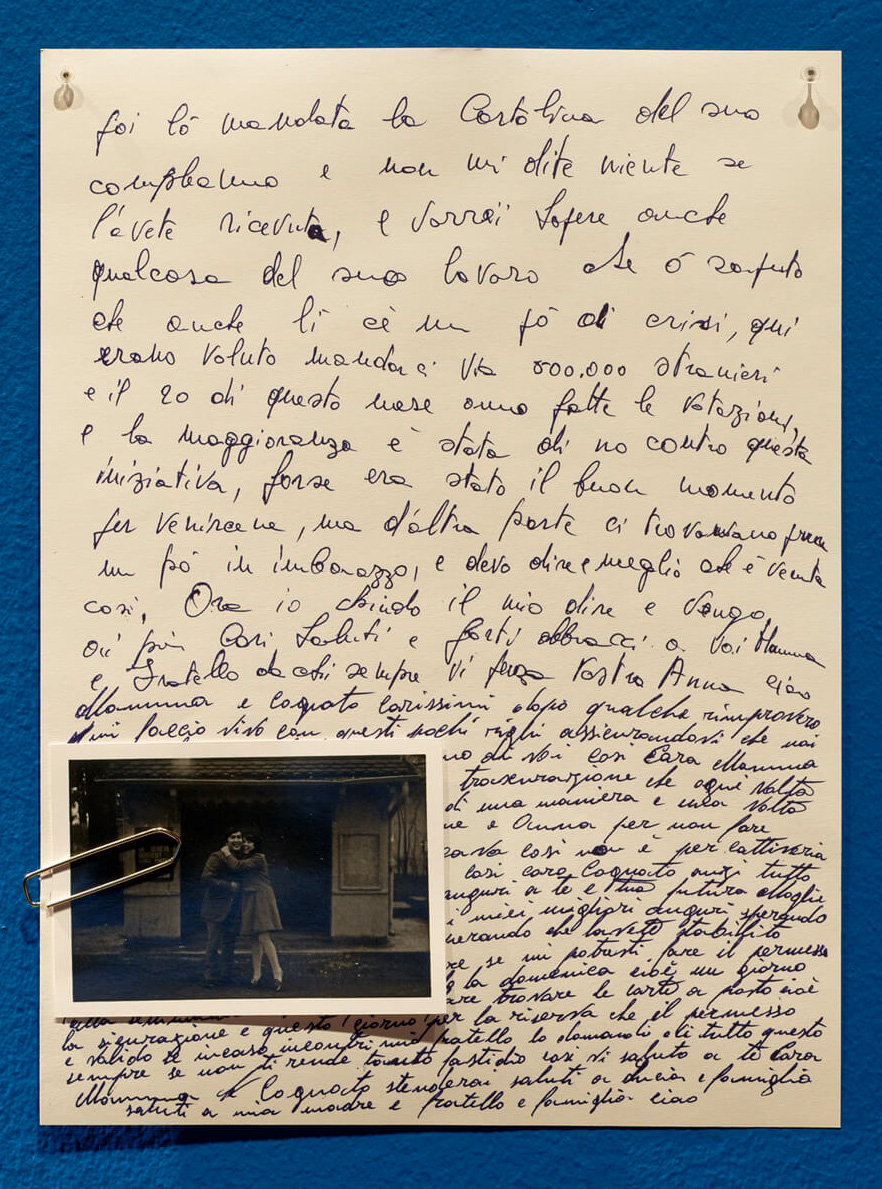 poi lò mandata la Cartolina del suo
compleanno e non mi dite niente se
l'avete ricevuta, e vorrei sapere anche
qualcosa del suo lavoro che ò saputo
che anche li cè un pò di crisi, qui
erano voluto mandarci via 500.000 stranieri
e il 20 di questo mese anno fatte le votazioni,
e la maggioranza è stata di no contro questa
iniziativa, forse era stato il buon momento
per venircene, ma d'altra parte ci trovavamo pure
un pò in imbarazzo, e devo dire meglio che è venuta
cosi, Ora io chiudo il mio dire e Vengo,
di più Cari Saluti e forti abbracci a voi Mamma
e Fratello da chi sempre vi pensa Vostra Anna ciao
Mamma e Cognato carissimi dopo qualche rimprovero
mi faccio vivo con questi pochi righi assicurandovi che noi
di voi cosi Cara Mamma
trascurazione che ogni volta
di una maniera e una volta
e Anna per non fare
cosi non è per cattiveria
cosi caro Cognato anzi tutto
auguri a te e tua futura Moglie
i miei migliori auguri sperando
che lavete stabilito
se mi potresti fare il permesso
la domenica cioè un giorno
trovare le carte a posto cioè
la sicurazione e questo (giorno) per la riserva che il permesso
e valido se incaso incontri mio fratello lo domandi di tutto questo
sempre se non ti rende tanto fastidio cosi vi saluto a te Cara
Mamma e Cognato stenderai saluti a Lucia e famiglia
saluti a mia madre e fratello e famiglia ciao